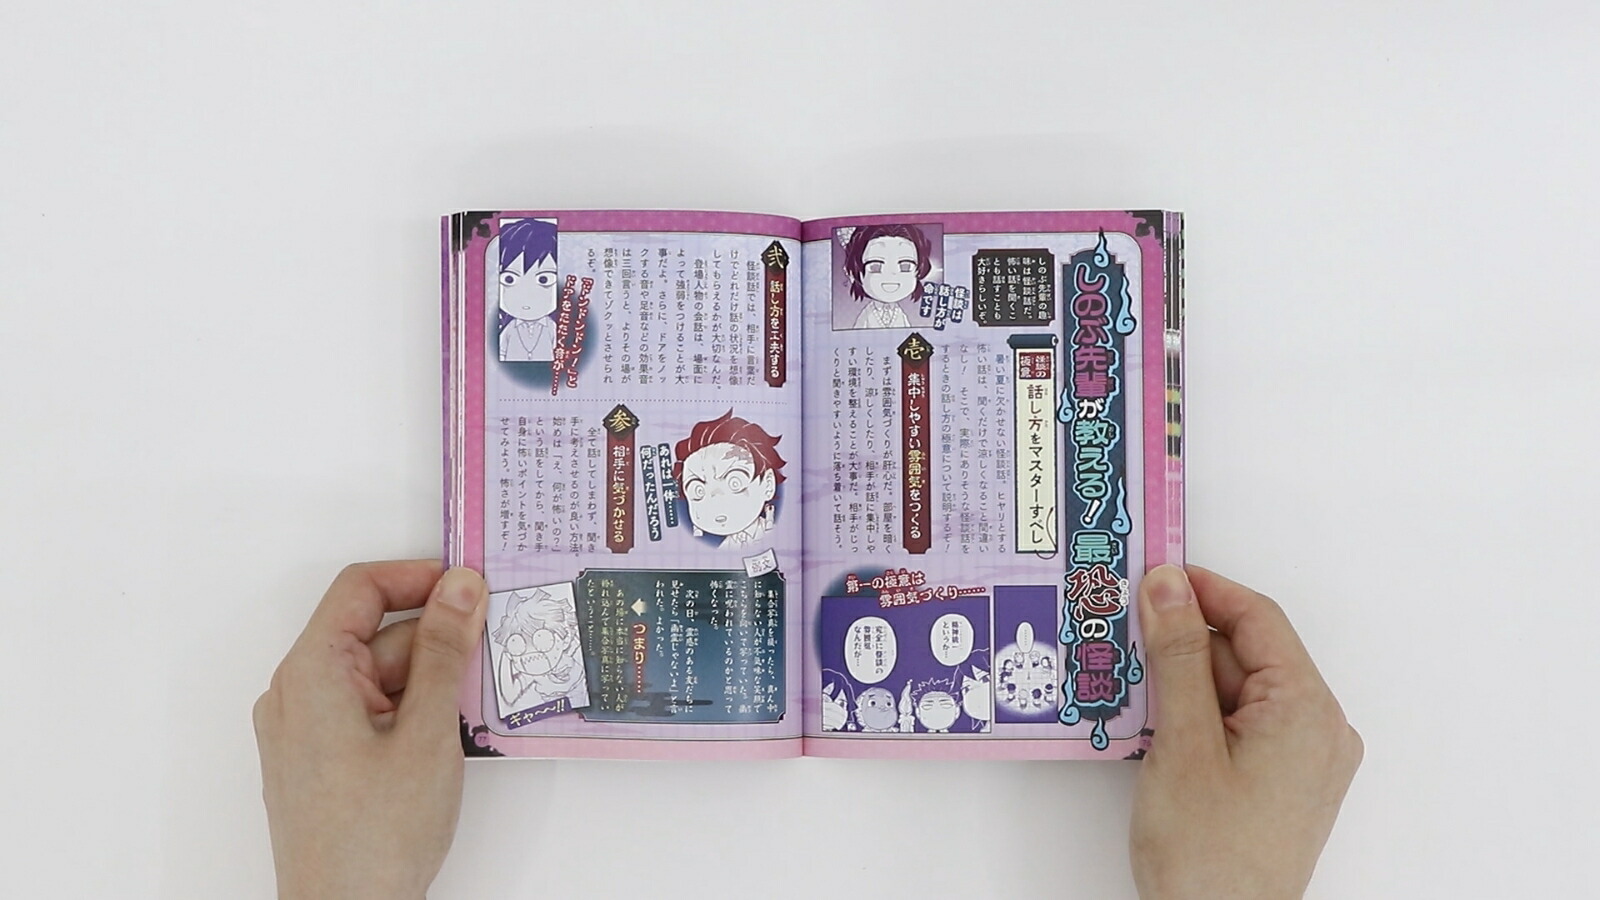 しのぶ先輩が教える！最恐の怪談
しのぶ先輩の趣
味は怪談話だ。
怖い話を聞くこ
とも話すことも
大好きらしいぞ。
怪談は
話し方が
命です
怪談の
極意
話し方をマスターすべし
暑い夏に欠かせない怪談話。ヒヤリとする
怖い話は、聞くだけで涼しくなること間違い
なし！そこで、実際にありそうな怪談話を
するときの話し方の極意について説明するぞ！
壱
集中しやすい雰囲気をつくる
まずは雰囲気づくりが肝心だ。部屋を暗く
したり、涼しくしたり、相手が話に集中しや
すい環境を整えることが大事だ。相手がじっ
くりと聞きやすいように落ち着いて話そう。
第一の極意は
雰囲気づくり……
精神統一
というか…
完全に怪談の
雰囲気
なんだが…
弐
話し方を工夫する
怪談話では、相手に言葉だ
けでどれだけ話の状況を想像
してもらえるかが大切なんだ。
登場人物の会話は、場面に
よって強弱をつけることが大
事だよ。さらに、ドアをノッ
クする音や足音などの効果音
は三回言うと、よりその場が
想像できてゾクッとさせられ
るぞ。
「ドンドンドン！」と
ドアをたたく音が……
参
相手に気づかせる
全て話してしまわず、聞き
手に考えさせるのが良い方法。
始めは「え、何が怖いの？」
という話をしてから、聞き手
自身に怖いポイントを気づか
せてみよう。怖さが増すぞ！
あれは一体……
何だったんだろう
例文
集合写真を撮ったら、真ん中
に知らない人が不気味な笑顔で
こちらを向いて写っていた。幽
霊に呪われているのかと思って
怖くなった。
次の日、霊感のある友だちに
見せたら「幽霊じゃないよ」と言
われた。よかった。
つまり……
あの場に本当に知らない人が
紛れ込んで集合写真に写ってい
たということ……
ギャ〜〜!!
77